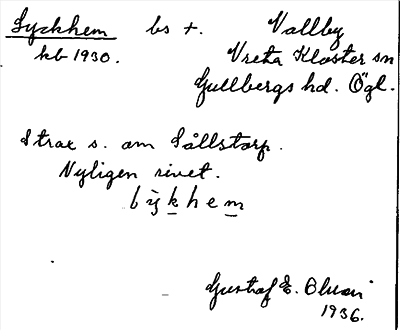 Lyckhem bs +. Vallby
kb 1930. Vreta Kloster sn
Gullbergs hd. Ögl.
Strax s. om Sållstorp.
Nyligen rivet.
Gustaf E.
1936.